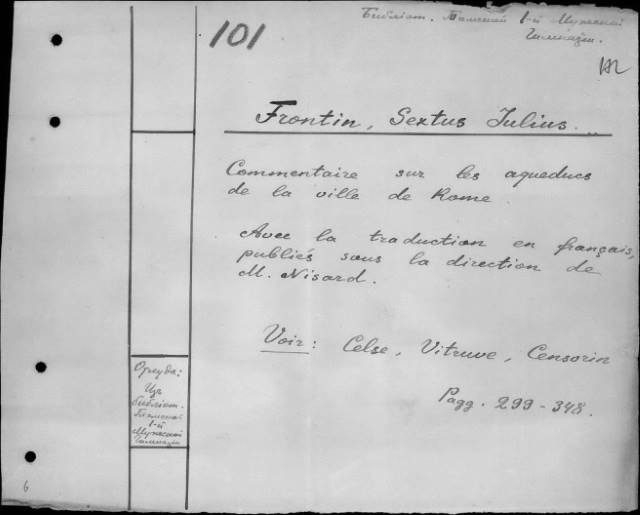 101
Библіот. 1-й Мужской
Гимназіи.
Frontin, Sextus Julius.
Commentaire sur les aqueducs
de la ville de Rome
Avec la traduction en français,
publiés sous la direction de
M. Nisard.
Voir: Celse, Vitruve, Censorin
Pagg. 299-348.
Откуда:
Изъ
библіот.
1-й
Мужской
Гимназіи
6